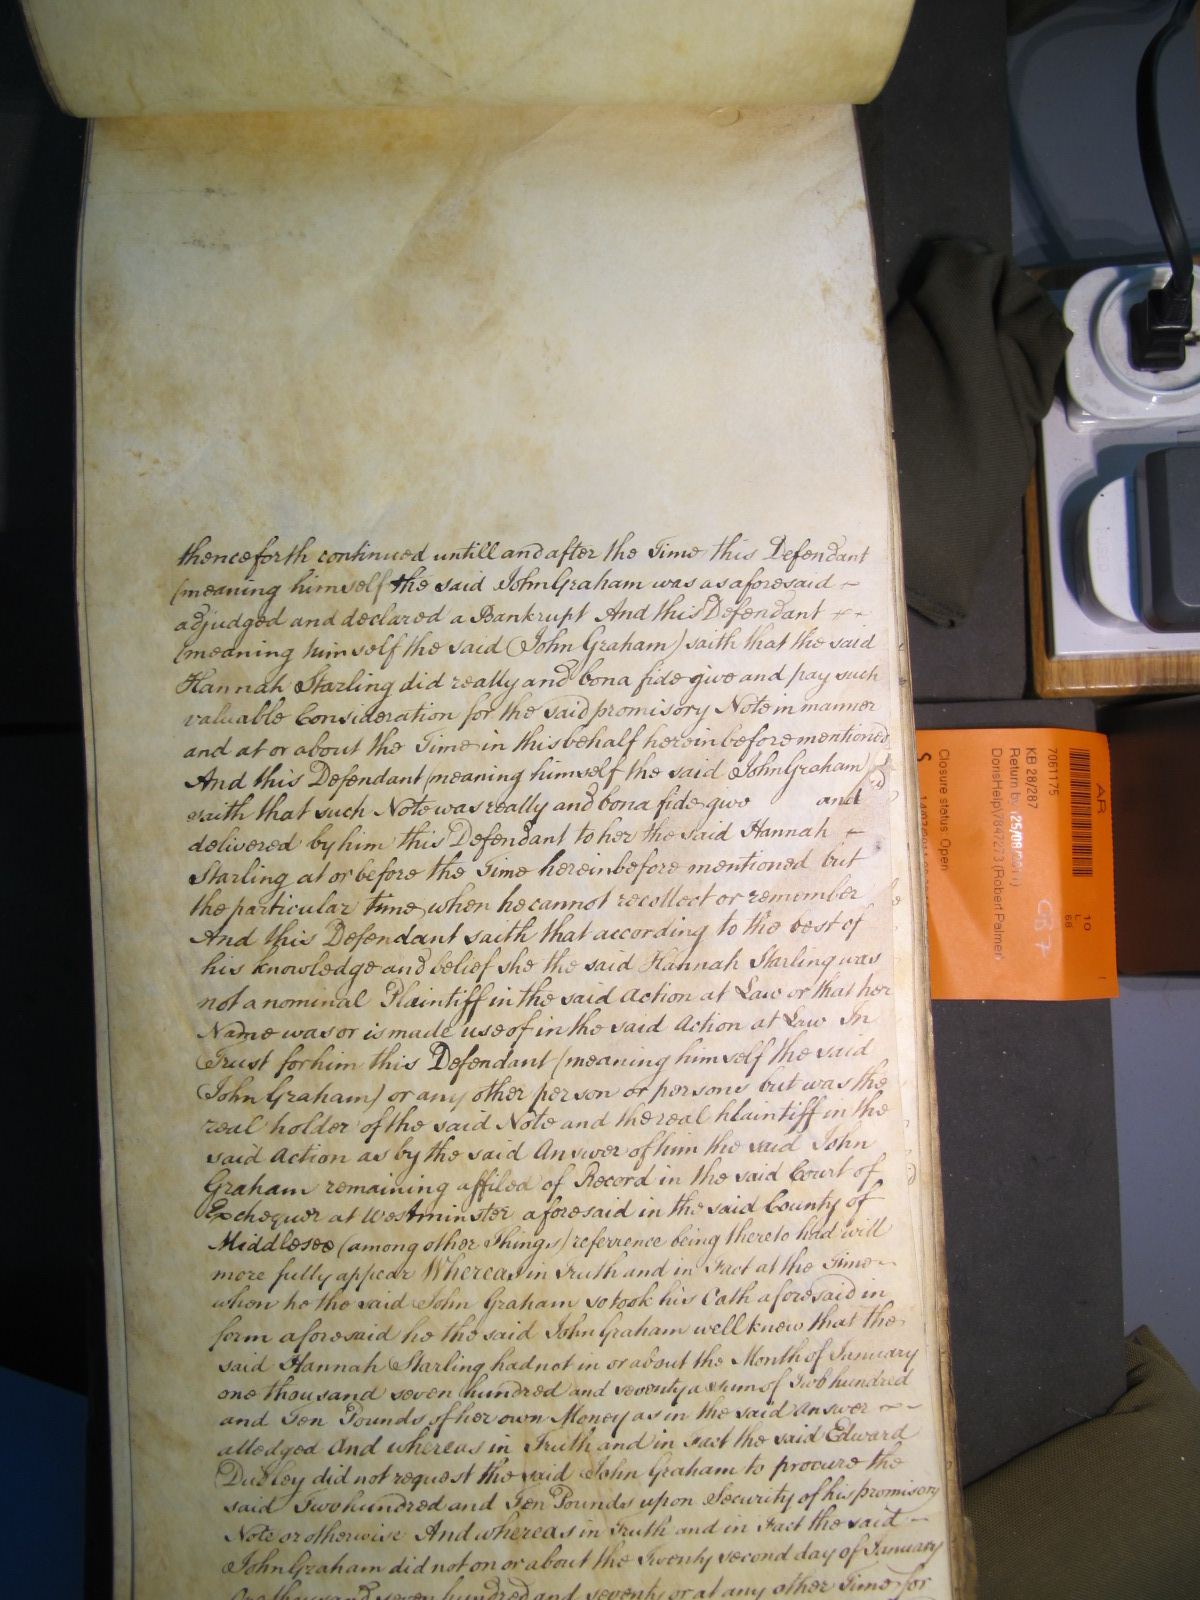 thenceforth continued untill and after the Time this Defendant
(meaning himself the said John Graham was as aforesaid
adjudged and declared a Bankrupt And this Defendant
(meaning himself the said (John Graham) saith that the said
Hannah Starling did really and bona fide give and pay such
valuable Consideration for the said promisory Note in manner
and at or about the Time in this behalf herein before mentioned
And this Defendant (meaning himself the said John Graham)
saith that such Note was really and bona fide give and
delivered by him this Defendant to her the said Hannah
Starling at or before the Time hereinbefore mentioned but
the particular time when he cannot recollect or remember
And this Defendant saith that according to the best of
his knowledge and belief she the said Hannah Starling was
not a nominal Plaintiff in the said Action at Law or that her
Name was or is made use of in the said Action at Law In
Trust for him this Defendant (meaning himself the said
John Graham) or any other person or persons but was the
real holder of the said Note and the real plaintiff in the
said Action as by the said Answer of him the said John
Graham remaining affiled of Record in the said Court of
Exchequer at Westminster aforesaid in the said County of
Middlesex (among other Things) referrence being thereto had will
more fully appear Whereas in Truth and in Fact at the Time
when he the said John Graham so took his Oath aforesaid in
form aforesaid he the said John Graham well knew that the
said Hannah Starling had not in or about the Month of January
one thousand seven hundred and seventy a sum of Two hundred
and Ten Pounds of her own Money as in the said Answer
alledged And whereas in Truth and in Fact the said Edward
Dudley did not request the said John Graham to procure the
said Two hundred and Ten Pounds upon Security of his promisory
Note or otherwise And whereas in Truth and in Fact the said
John Graham did not on or about the Twenty second day of January
One thousand seven hundred and seventy or at any other Time for
AR
7061175
KB 28/287
Return by 25/08/2011
DorisHelp\7847273 (Robert Palmer)
Closure status: Open
S